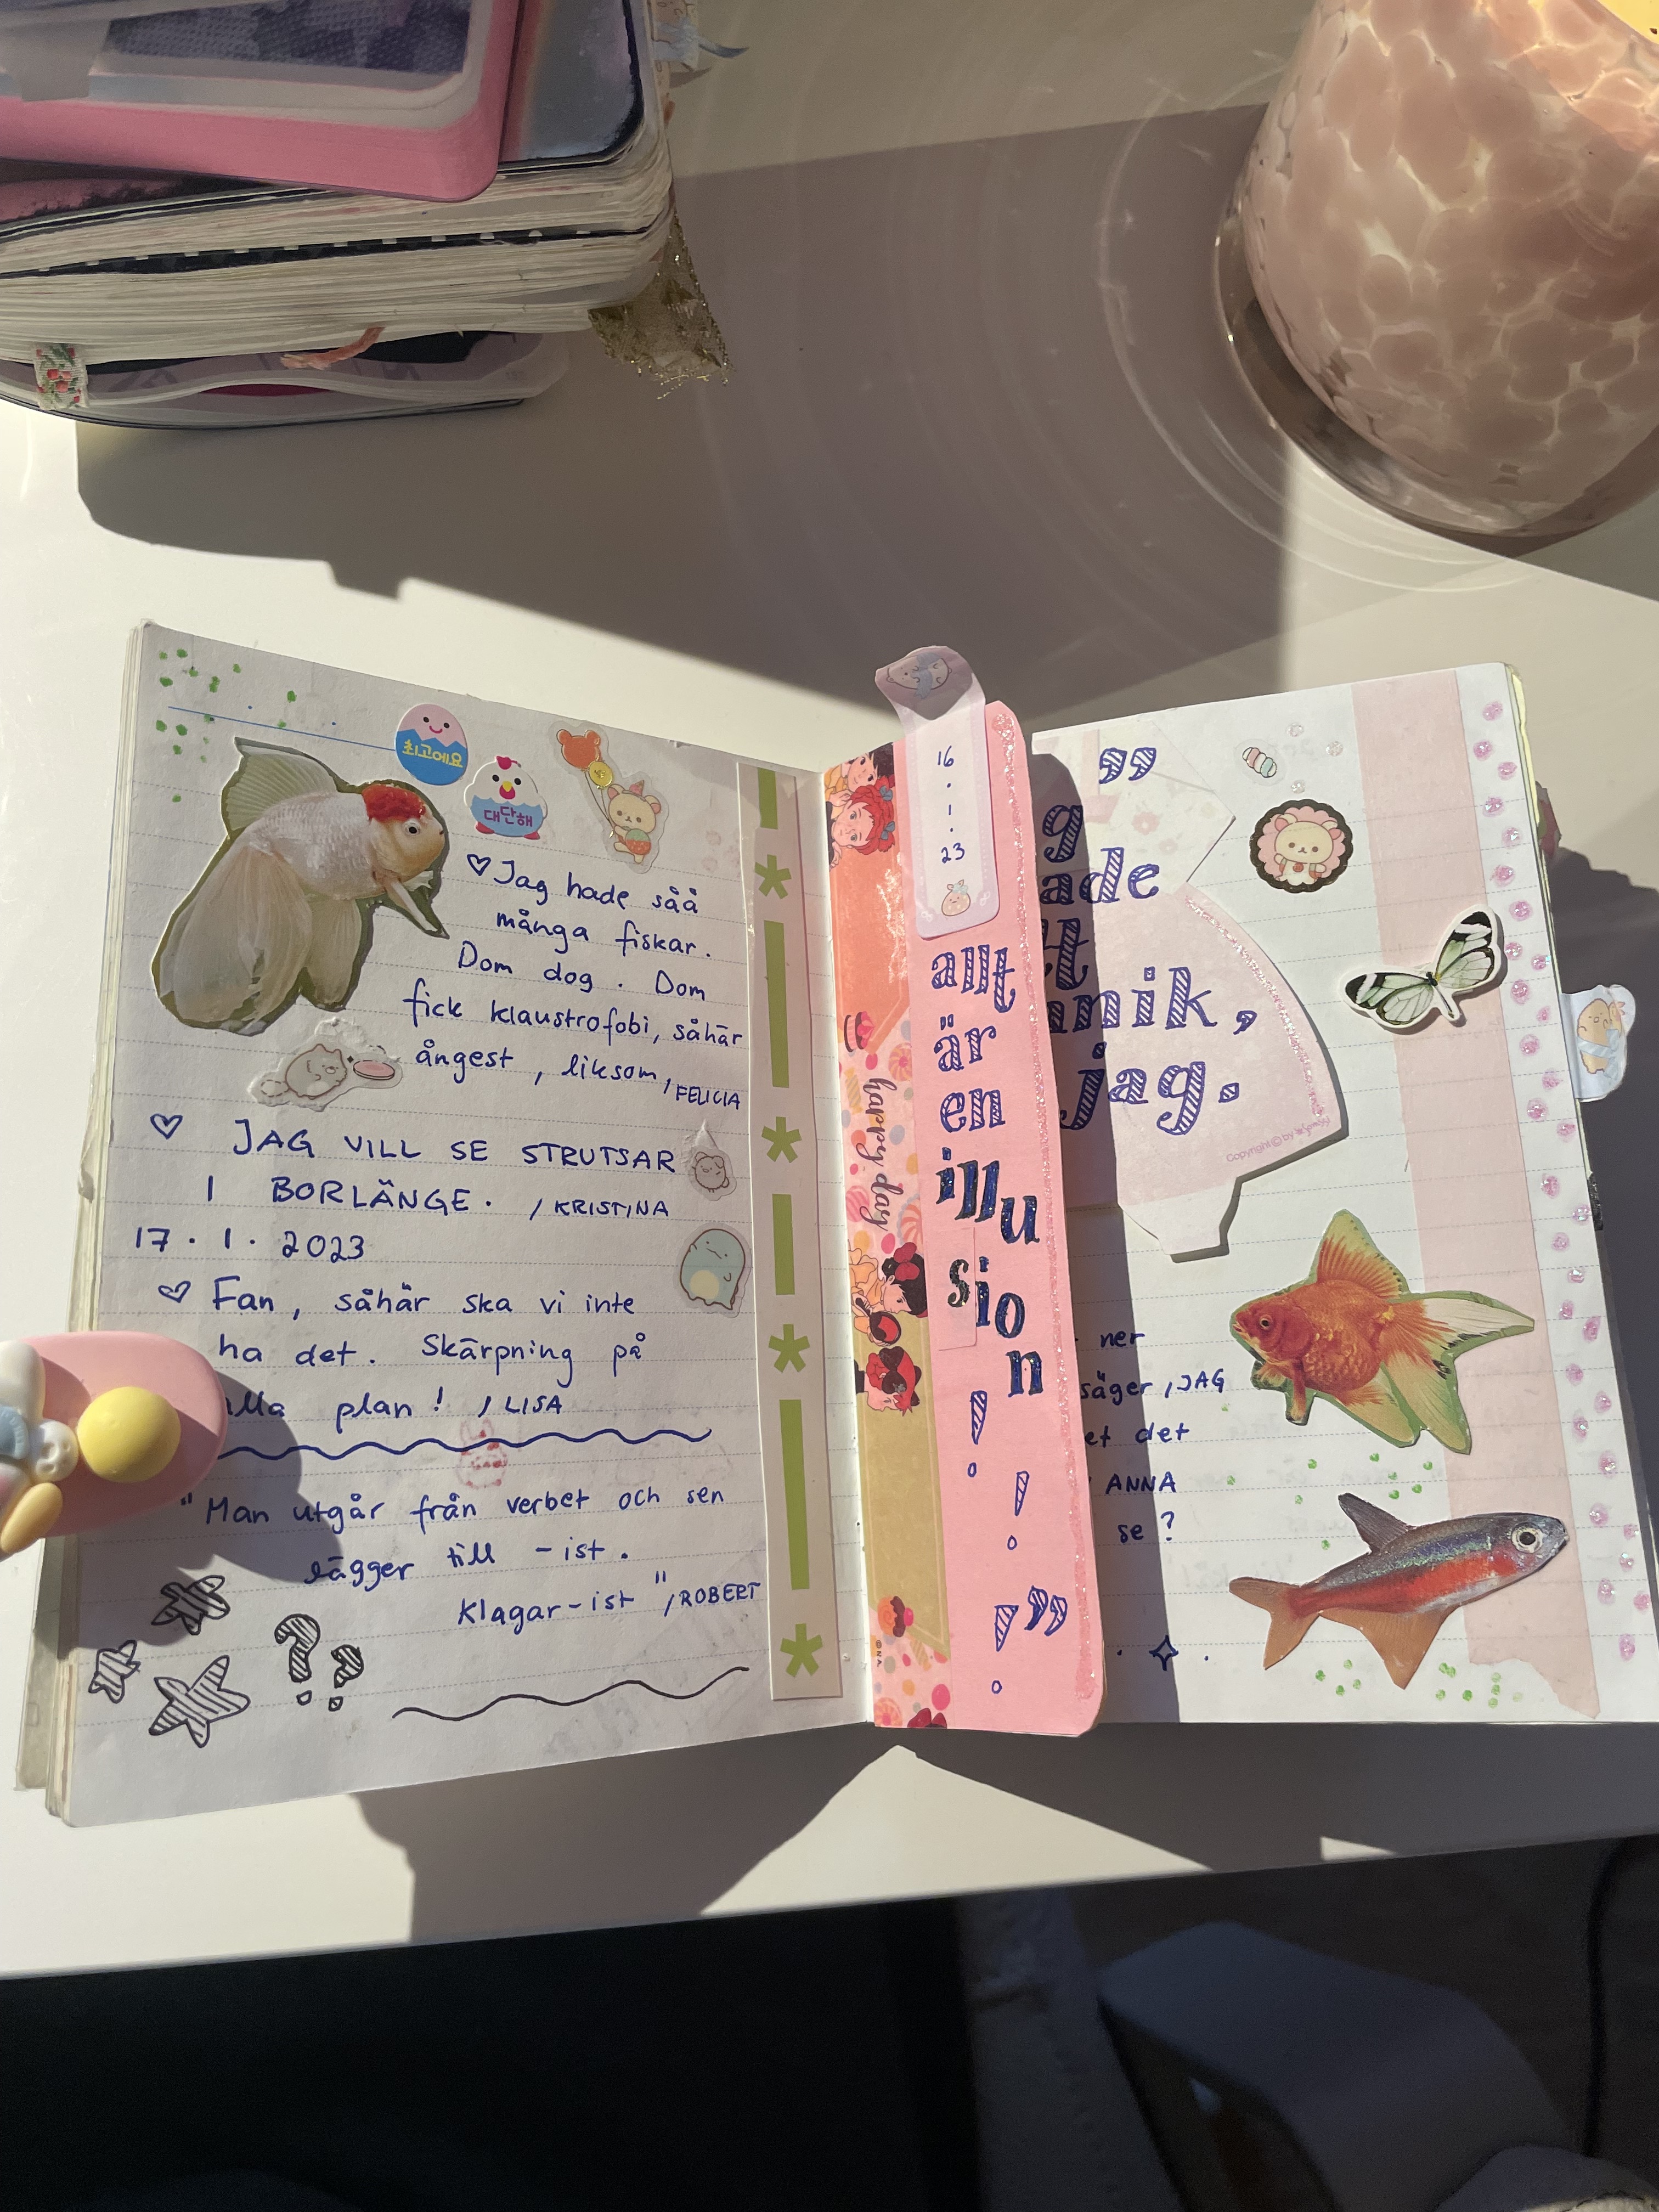 최고에요
대단해
Jag hade såå
många fiskar.
Dom dog. Dom
fick klaustrofobi, såhär
ångest, liksom, /FELICIA
JAG VILL SE STRUTSAR
I BORLÄNGE. /KRISTINA
17.1.2023
Fan, såhär ska vi inte
ha det. Skärpning på
alla plan! /LISA
"Man utgår från verbet och sen
lägger till -ist.
Klagar-ist" /ROBERT
??
16
.
1
.
23
happy day
allt
är
en
illu
sio
n
!
!
!"
"
g
ade
tt
nik,
jag.
Copyright © by
ner
säger /JAG
et det
ANNA
se?